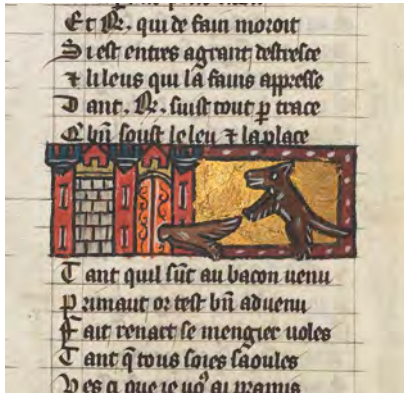 Et .R. qui de fain moroit
Si est entres a grant destresce
⁊ li leus qui la fains appresse
D ant .R. suist tout p trace
C bñ soust le leu ⁊ la place
T ant quil sũt au bacon uenu
P rimaut or test bñ aduenu
F ait renart se mengier uoles
T ant q̃ tous soies saoules
V es ci que ie uoꝰ ai pramis